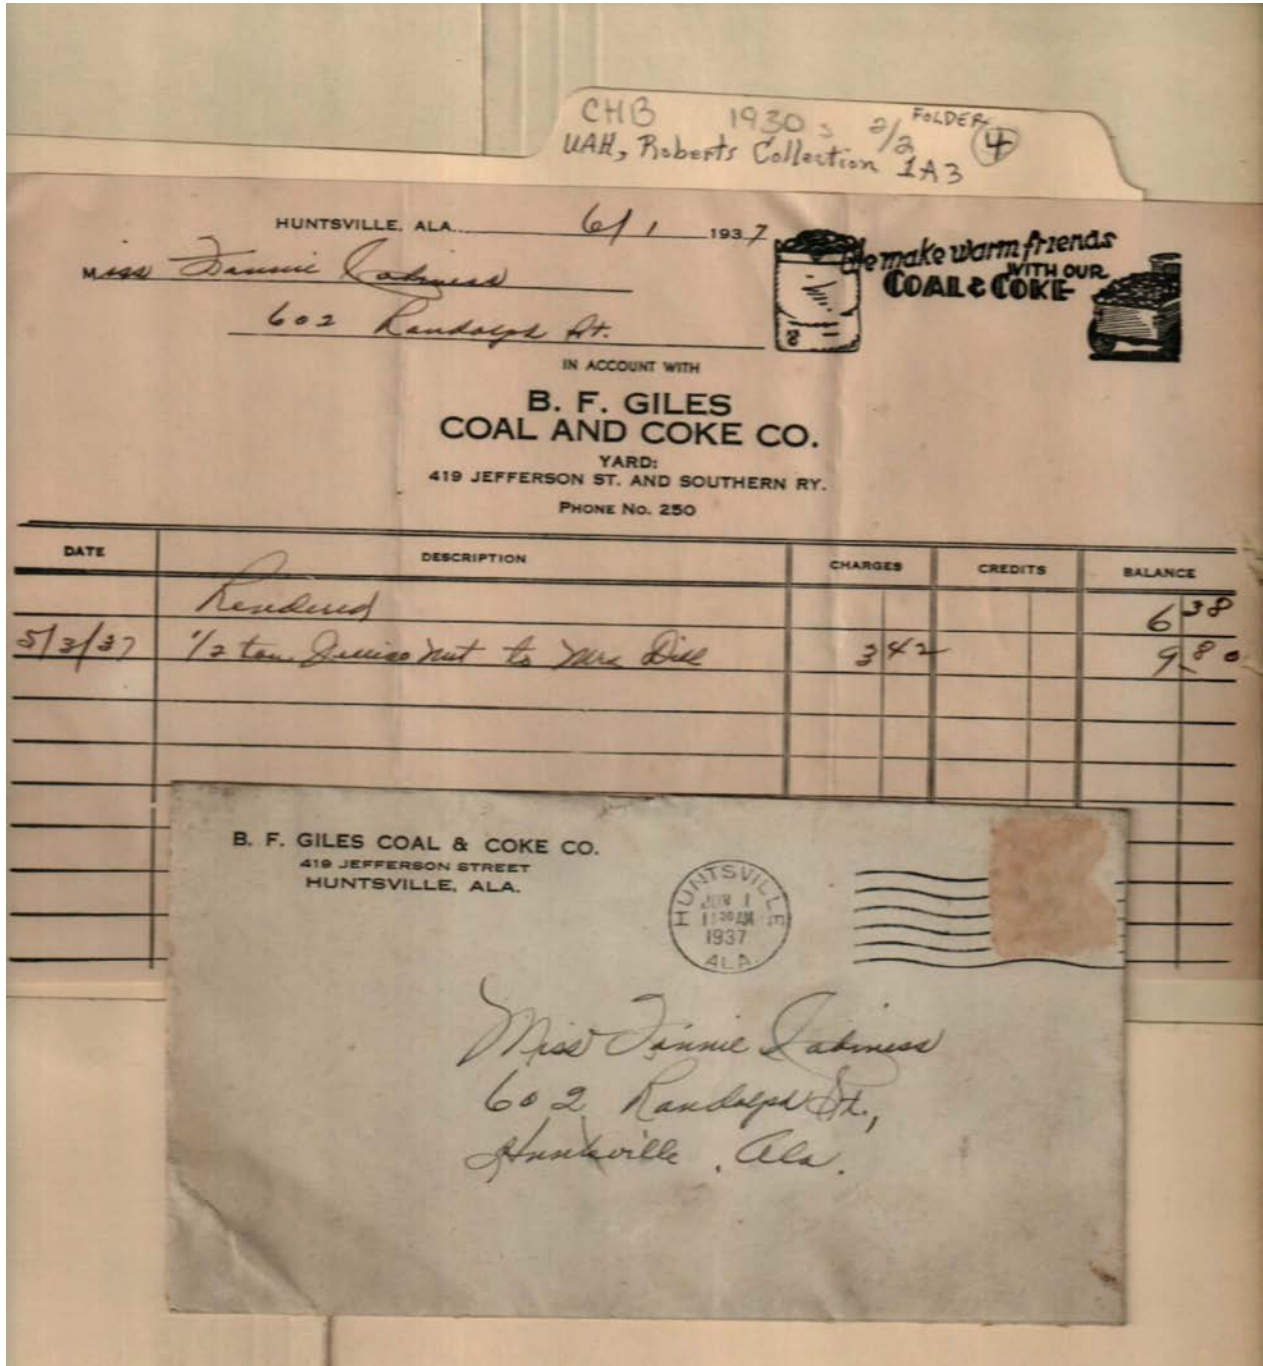 CHB 1930s 2/2 FOLDER 4
UAH, Roberts Collection 1A3
HUNTSVILLE, ALA. 6/1 1937
Miss Fannie Cabiness
602 Randolph St.
We make warm friends
WITH OUR
COAL & COKE
IN ACCOUNT WITH
B. F. GILES
COAL AND COKE CO.
YARD:
419 JEFFERSON ST. AND SOUTHERN RY.
PHONE NO. 250
DATE DESCRIPTION CHARGES CREDITS BALANCE
Rendered 6 38
5/3/37 1/2 ton nut to Mrs Dill 3 42 9 80
B. F. GILES COAL & COKE CO.
419 JEFFERSON STREET
HUNTSVILLE, ALA.
HUNTSVILLE
JUN 1
11 30 AM
1937
ALA.
Miss Fannie Cabiness
602 Randolph St.,
Huntsville, Ala.